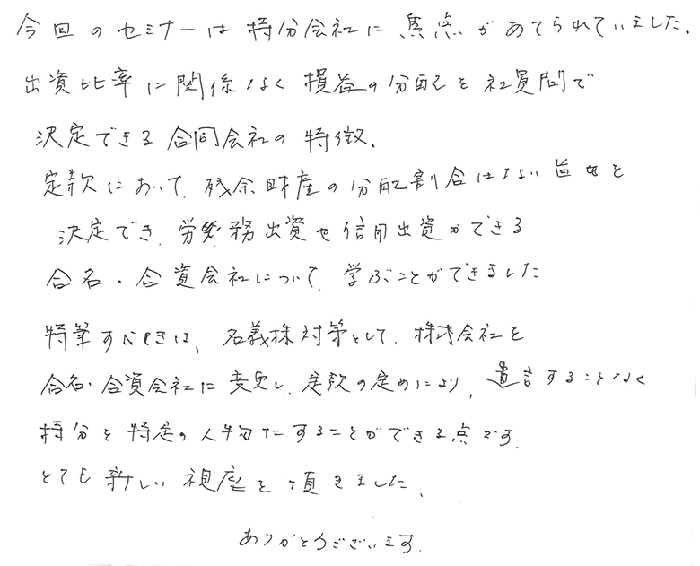 今回のセミナーは持分会社に焦点があてられていました.
出資比率に関係なく損益の分配を社員間で
決定できる合同会社の特徴.
定款において、残余財産の分配割合はない旨を
決定でき、労務出資や信用出資ができる
合名・合資会社について、学ぶことができました
特筆すべきは、名義株対策として、株式会社を
合名・合資会社に変更し、定款の定めにより、遺言することなく
持分を特定の人物にすることができる点です.
とても新しい視座を頂きました、
ありがとうございます.